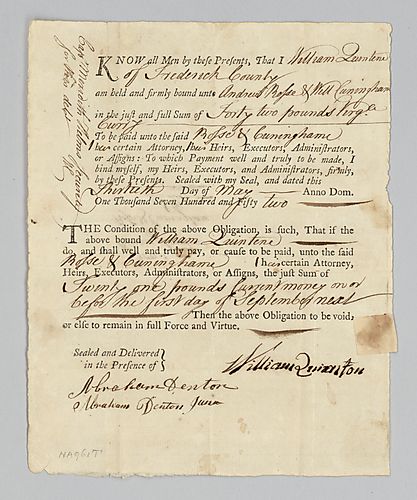 KNOW all Men by these Presents, That I William Quintene
of Frederick County
am held and firmly bound unto Andrew Bosse & Will Cuninghame
in the just and full Sum of Forty two pounds Virga
Curry
To be paid unto the said Bosse & Cuninghame
their certain Attorney, their Heirs, Executors, Administrators,
or Assigns: To which Payment well and truly to be made, I
bind myself, my Heirs, Executors, and Administrators, firmly,
by these Presents. Sealed with my Seal, and dated this
Thirtieth Day of May Anno Dom.
One Thousand Seven Hundred and Fifty two
THE Condition of the above Obligation, is such, That if the
above bound William Quintene
do, and shall well and truly pay, or cause to be paid, unto the said
Bosse & Cuninghame their certain Attorney,
Heirs, Executors, Administrators, or Assigns, the just Sum of
Twenty one pounds Current money on or
befor the first day of September next
Then the above Obligation to be void,
or else to remain in full Force and Virtue.
Sealed and Delivered
in the Presence of
William Quinton
Abraham Denton
Abraham Denton Junr